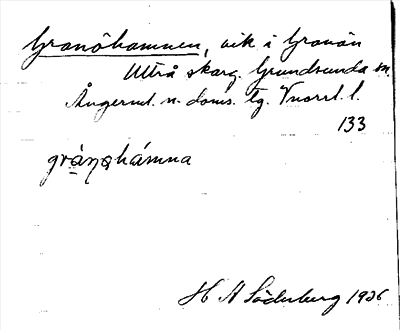 Granöhamnen, vik i Granön
Utrå skarg. Grundsunda sn
Ångerml. n. doms. tg. Vnorrl. l.
133
gránəhámna
H A Söderberg 1936